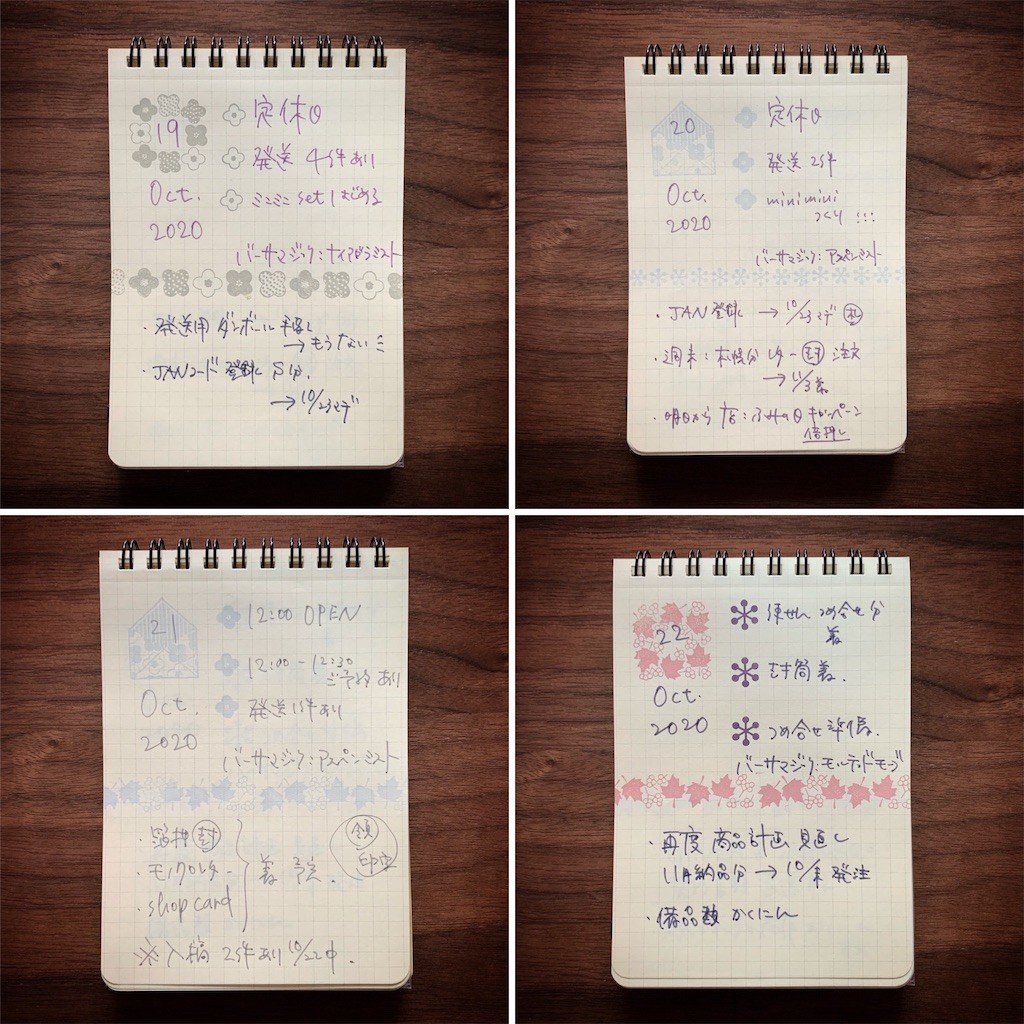 19
Oct.
2020
定休日
発送 4件あり
ミニミニ set はじめる
バーサマジック:ナイアガラミスト
・発送用 ダンボール 手配し
→もうない
・JANコード 登録し
→10/23マデ
20
Oct.
2020
定休日
発送 2件
minimini
つくり !!!
バーサマジック:アスペンミスト
・JAN 登録し →10/23マデ
・週末: 封 注文
→11/3着
・明日から 店:ふみの日 キャンペーン
倍押し
21
Oct.
2020
12:00 OPEN
12:00-12:30
ご予約 あり
発送1件あり
バーサマジック:アスペンミスト
・箔押 封
・モノクロレター
・shop card
着 予定.
領
※入稿 2件あり 10/22中.
22
Oct.
2020
便せん つめ合せ分
着
封筒 着.
つめ合せ 準備.
バーサマジック:モルテッドモーブ
・再度 商品計画 見直し
11月納品分 →10/末 発注
・備品数 かくにん